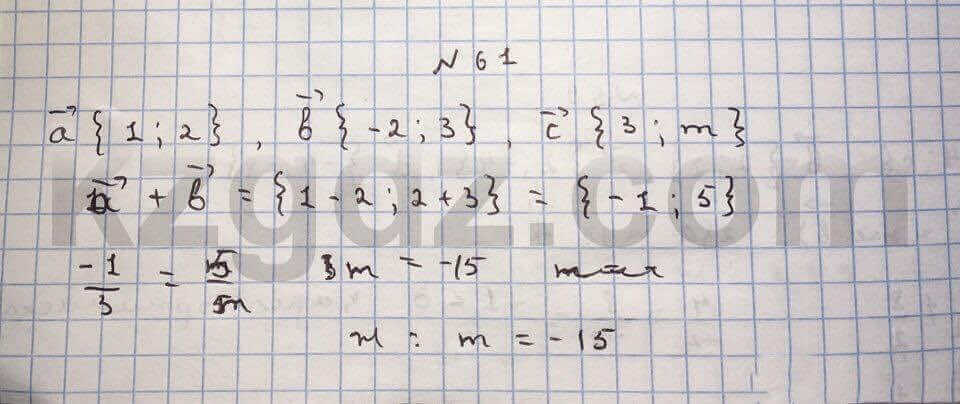 N 61
a⃗ {1 ; 2} , b⃗ {-2 ; 3} , c⃗ {3 ; m}
a⃗ + b⃗ = {1 - 2 ; 2 + 3} = {-1 ; 5}
-1/3 = 5/m m = -15
: m = -15
kzgdz.com